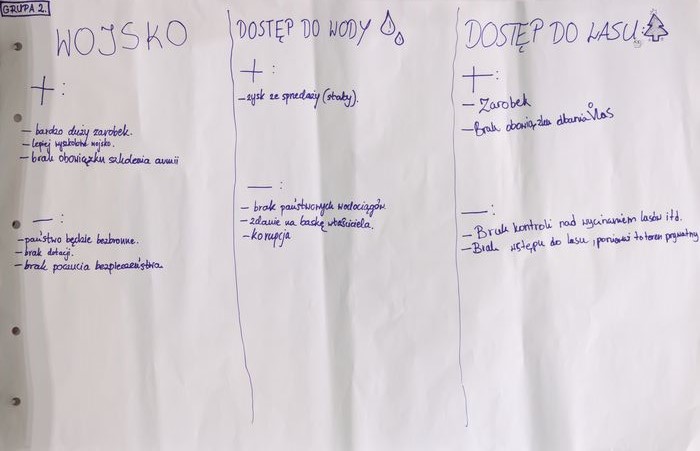 GRUPA 2.
WOJSKO
+ :
- bardzo duży zarobek.
- Lepiej wyszkolone wojsko.
- brak obowiązku szkolenia armii
- :
- państwo będzie bezbronne.
- brak dotacji.
- brak poczucia bezpieczeństwa.
DOSTĘP DO WODY
+ :
- zysk ze sprzedaży (stały).
- :
- brak państwowych wodociągów.
- zdanie na łaskę właściciela.
- korupcja
DOSTĘP DO LASU
+ :
- Zarobek
- Brak obowiązku dbania o las
- :
- Brak kontroli nad wycinaniem lasów itd.
- Brak wstępu do lasu, ponieważ to teren prywatny